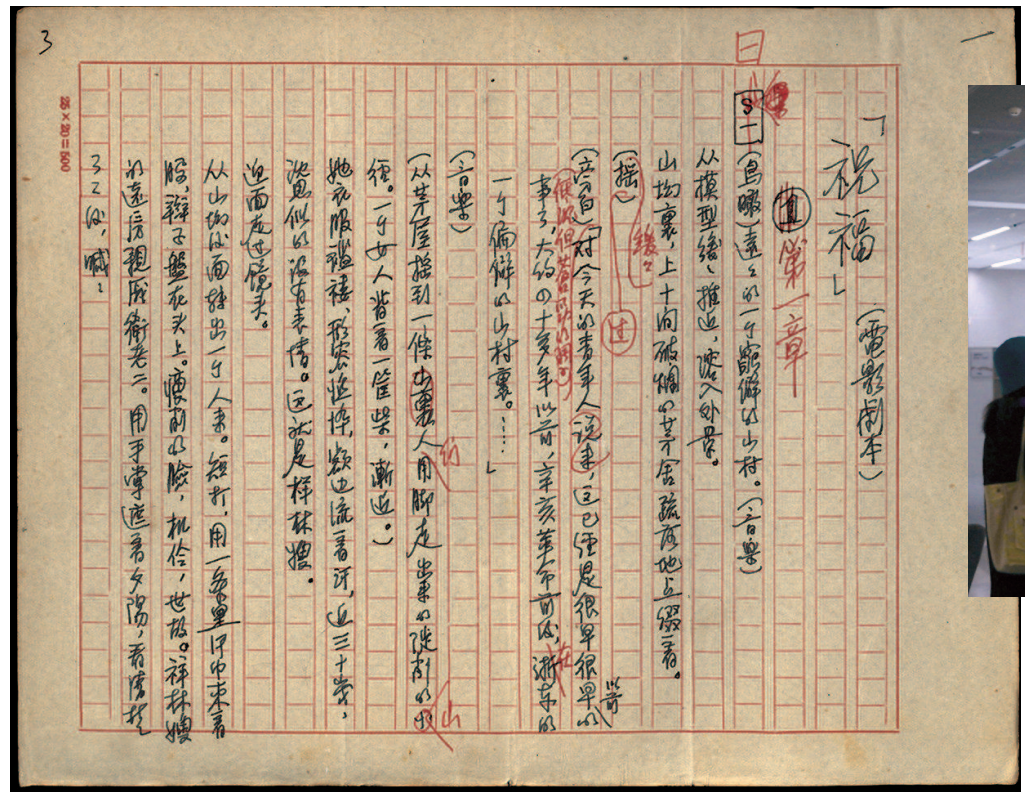 一
3
25×20=500
日
「祝福」（電影劇本）
第一章
S一
（鳥瞰）遠々的一个偏僻的山村。（音樂）
从模型緩々推近，溶入外景。
山坳裏，上十间破爛的茅舍疏落地点缀着。
（搖）
緩々
过
（旁白）「对今天的青年人说来，这已經是很早很早以前的
低沉但
事了，大约四十多年以前，辛亥革命前后，在浙东的
一个偏僻的山村裏。……」
（音樂）
（从茅屋搖到一條山裏人用脚走出来的陡削的山
徑。一个女人揹着一筐柴，漸近。）
她衣服滥褸、形容憔悴，额边流着汗，近三十岁，
沈思似的没有表情。这就是祥林嫂。
迎面走过镜头。
从山坳后面轉出一个人来。短打，用一条黑洋巾束着
腰，辮子盤在头上。瘦削的臉，机伶，世故。祥林嫂
的遠房親戚衛老二。用手掌遮着夕陽，看清楚
了之后，喊：